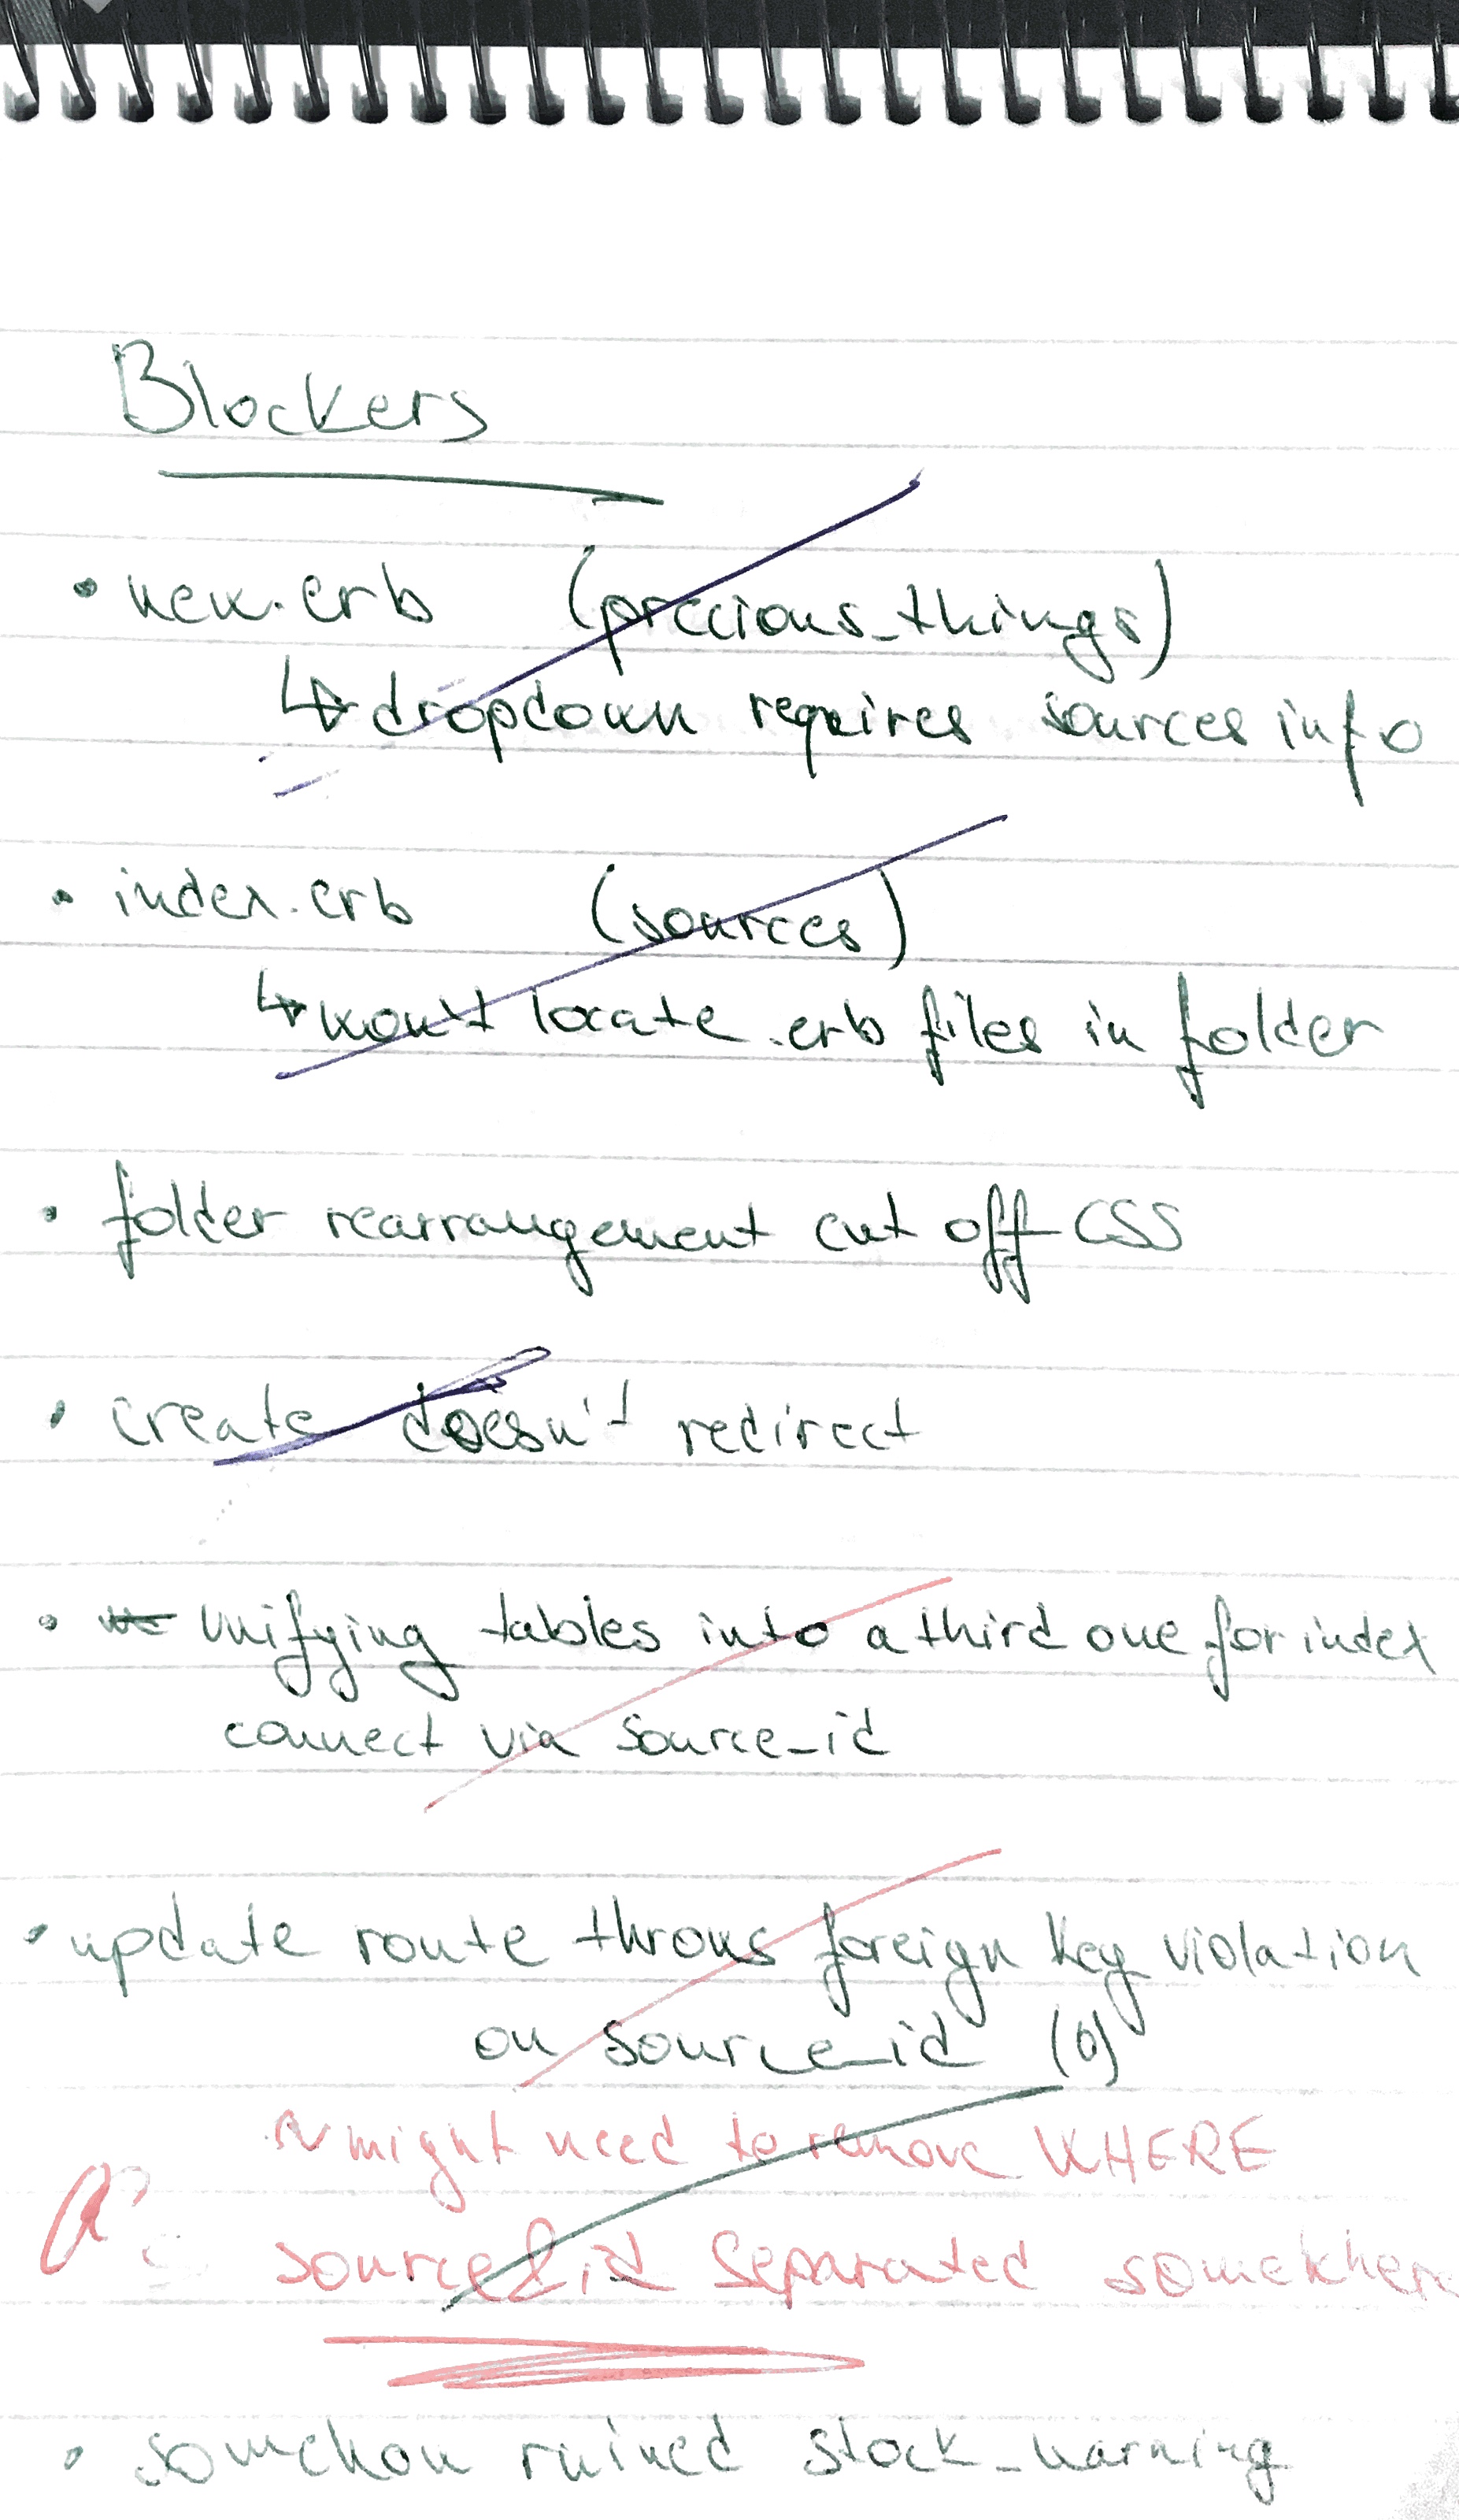 Blockers
• new.erb (precious_things)
↳ dropdown requires sources info
• index.erb (sources)
↳ won't locate .erb files in folder
• folder rearrangement cut off CSS
• create doesn't redirect
• unifying tables into a third one for index
connect via source_id
• update route throws foreign key violation
on source_id (0)
might need to remove WHERE
source & id separated somewhere
• somehow ruined stock_warning